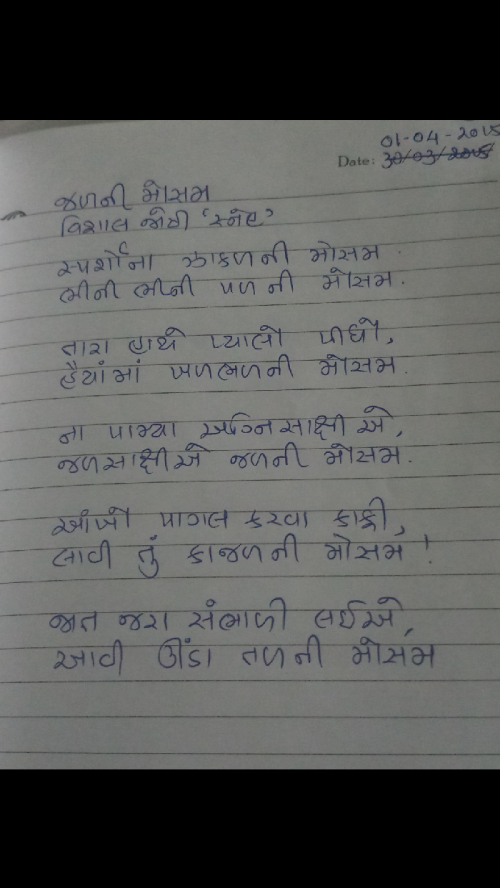 01-04-2015
Date: 30/03/2015
જળની મોસમ
વિશાલ જોષી 'સ્નેહ'
સ્પર્શોના ઝાકળની મોસમ
ભીની ભીની પળની મોસમ.
તારા હાથે પ્યાલો પીધો,
હૈયાંમાં ખળભળની મોસમ.
ના પામ્યા અગ્નિસાક્ષીએ,
જળસાક્ષીએ જળની મોસમ.
આંખો પાગલ કરવા કાફી,
લાવી તું કાજળની મોસમ!
જાત જરા સંભાળી લઈએ,
આવી ઊંડા તળની મોસમ